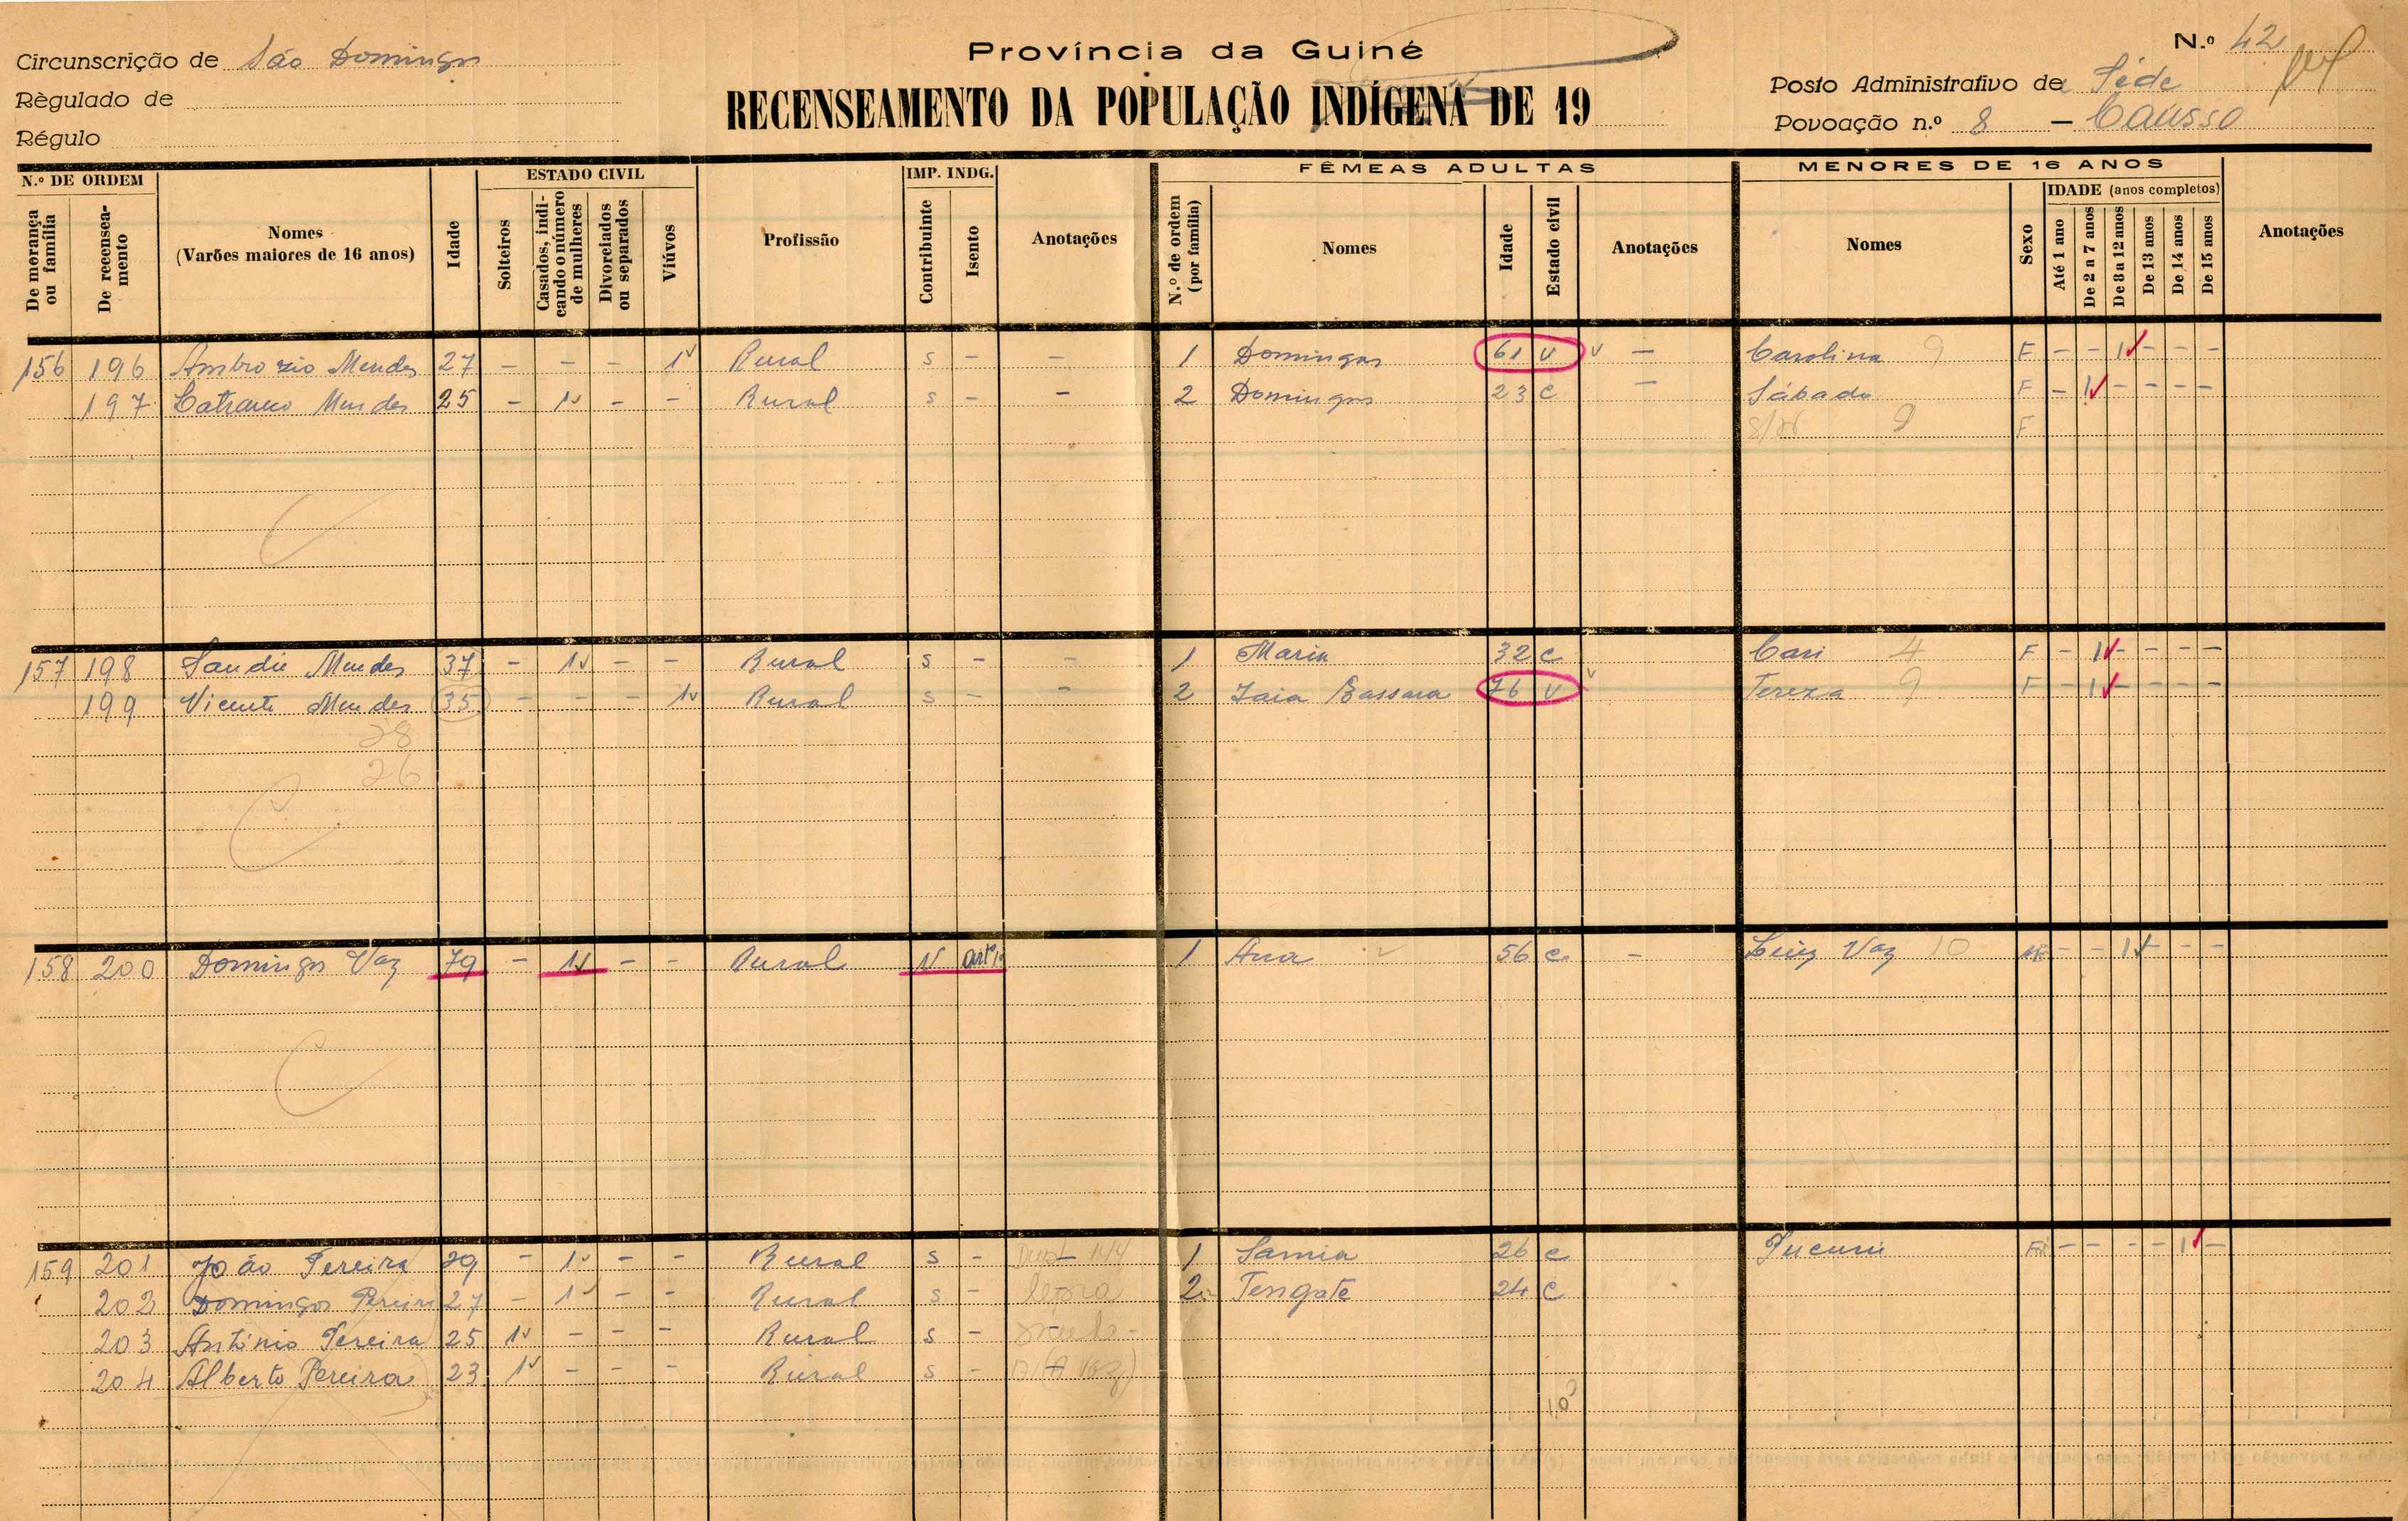 Província da Guiné
N.º 42
Circunscrição de São Domingos
RECENSEAMENTO DA POPULAÇÃO INDÍGENA DE 19
Posto Administrativo de Séde
Règulado de
Povoação n.º 8 — Caüsso
Régulo
N.º DE ORDEM
De morança ou família
De recenseamento
Nomes
(Varões maiores de 16 anos)
Idade
ESTADO CIVIL
Solteiros
Casados, indicando o número de mulheres
Divorciados ou separados
Viúvos
Profissão
IMP. INDG.
Contribuinte
Isento
Anotações
FÊMEAS ADULTAS
N.º de ordem (por família)
Nomes
Idade
Estado civil
Anotações
MENORES DE 16 ANOS
Nomes
Sexo
IDADE (anos completos)
Até 1 ano
De 2 a 7 anos
De 8 a 12 anos
De 13 anos
De 14 anos
De 15 anos
Anotações
156 196 Ambrozio Mendes 27 – – – 1 Rural s – – 1 Domingas 61 v – Carolina 9 F – – 1 – – –
197 Mendes 25 – 1 – – Rural s – – 2 Domingas 23 c – Sábado F – 1 – – – –
9 F
157 198 Mendes 37 – 1 – – Rural s – – 1 Maria 32 c Cari 4 F – 1 – – – –
199 Vicente Mendes 35 – – – 1 Rural s – – 2 Bassara 76 v Tereza 9 F – 1 – – – –
28
26
158 200 Domingos Vaz 79 – 1 – – Rural N 1 Ana 56 c. – Luiz Vaz 10 – – 1 – – –
159 201 João Pereira 29 – 1 – – Rural s – 1 Samia 26 c – – – – 1 –
202 Domingos Pereira 27 – 1 – – Rural s – lepra 2 Tengate 24 c
203 António Pereira 25 1 – – – Rural s –
204 Alberto Pereira 23 1 – – – Rural s –